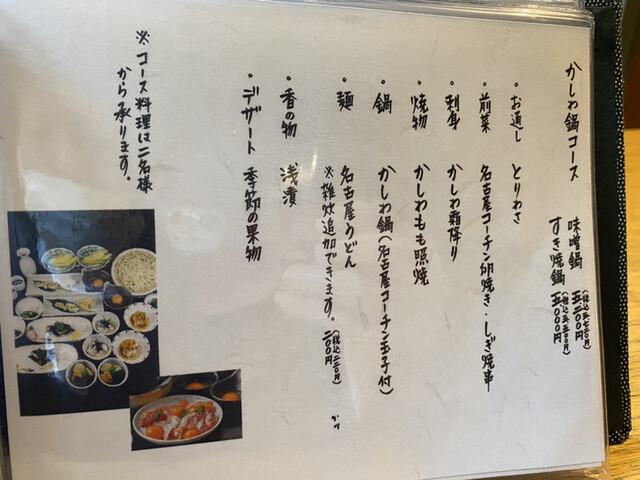 かしわ鍋コース
味噌鍋 五二〇〇円
(税込五、七二〇円)
すき焼鍋 五〇〇〇円
(税込五、五〇〇円)
・お通し とりわさ
・前菜 名古屋コーチン卵焼き・しぎ焼串
・刺身 かしわ霜降り
・焼物 かしわもも照焼
・鍋 かしわ鍋(名古屋コーチン玉子付)
・麺 名古屋うどん
※雑炊追加できます。二〇〇円
(税込二二〇円)
・香の物 浅漬
・デザート 季節の果物
※コース料理は二名様
から承ります。